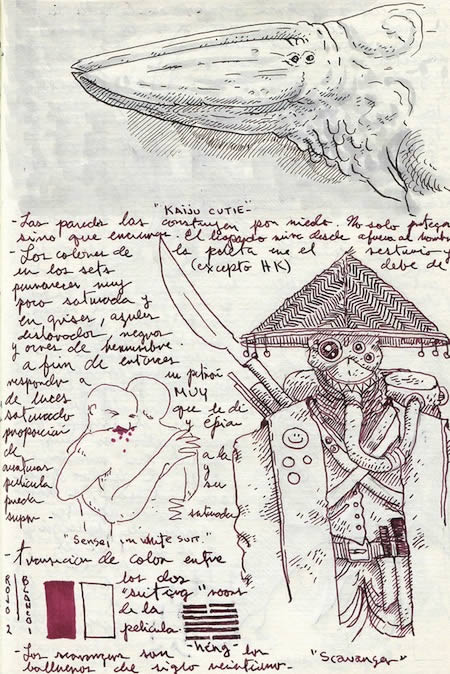 "KAIJU CUTIE"
- Las paredes las construyen por miedo. No solo protegen
sino que encierran. El             mira desde afuera al hombre
- Los colores de la paleta en el vestuario y
en los sets (excepto HK) debe de
permanecer muy
poco saturada y
en grises, azules
deslavados, negros
y ocres de herrumbre.
a fin de entonces
responder a un patrón
de luces MUY
saturado que le dé
proporción y
de a la
aventuras y
película su
pueda saturada
"Sensei in white suit."
- transición de color entre
los dos
"suiting" rooms
de la
película.
ROJO 2
BLANCO 1
"Héng"
- Los scavengers son los
balleneros de siglo veintiuno.
"Scavanger"